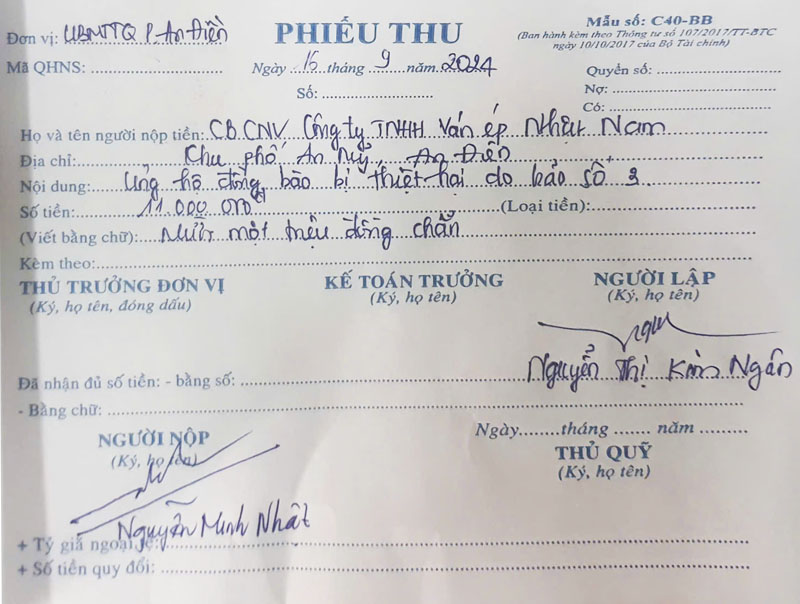 Đơn vị: UBMTTQ P. An Điền
Mã QHNS:
PHIẾU THU
Ngày 15 tháng 9 năm 2024
Số:
Mẫu số: C40-BB
(Ban hành kèm theo Thông tư số 107/2017/TT-BTC
ngày 10/10/2017 của Bộ Tài chính)
Quyển số:
Nợ:
Có:
Họ và tên người nộp tiền: CB.CNV Công ty TNHH Ván ép Nhật Nam
Địa chỉ: Khu phố An Mỹ, An Điền
Nội dung: Ủng hộ đồng bào bị thiệt hại do bão số 3
Số tiền: 11.000.000đ (Loại tiền):
(Viết bằng chữ): Mười một triệu đồng chẵn
Kèm theo:
THỦ TRƯỞNG ĐƠN VỊ KẾ TOÁN TRƯỞNG NGƯỜI LẬP
(Ký, họ tên, đóng dấu) (Ký, họ tên) (Ký, họ tên)
Nguyễn Thị Kim Ngân
Đã nhận đủ số tiền: - bằng số:
- Bằng chữ:
Ngày tháng năm
NGƯỜI NỘP THỦ QUỸ
(Ký, họ tên) (Ký, họ tên)
Nguyễn Minh Nhật
+ Tỷ giá ngoại tệ:
+ Số tiền quy đổi: